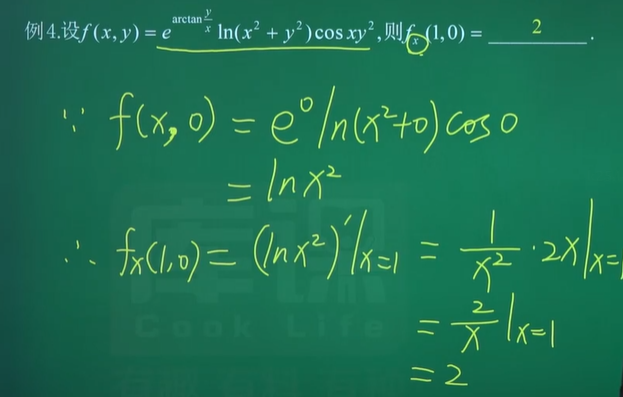 例4.设f(x, y) = e^{arctan y/x} ln(x² + y²)cos xy²,则f_x(1,0) = 2 .
∵ f(x, 0) = e⁰ ln(x²+0) cos 0
= ln x²
∴ f_x(1,0) = (ln x²)'|x=1 = 1/x² · 2x|x=
= 2/x |x=1
= 2
库课
Cook Life